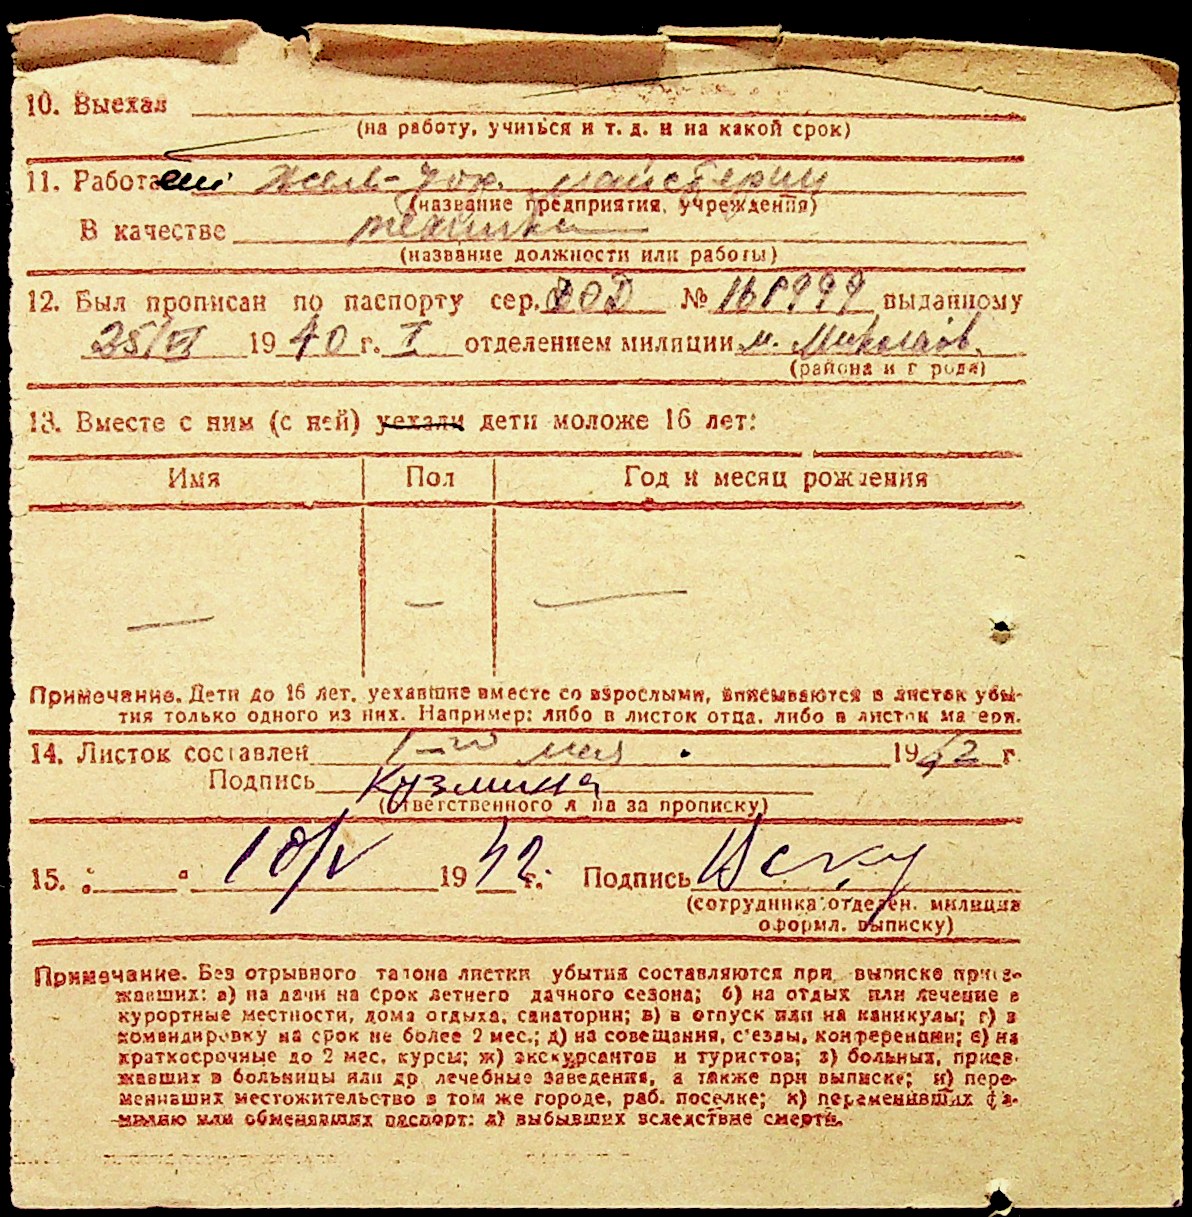 10. Выехал
(на работу, учиться и т. д. и на какой срок)
11. Работает майстерни
(название предприятия, учреждения)
В качестве
(название должности или работы)
12. Был прописан по паспорту сер. № 168999 выданному
25/VI 1940 г. I отделением милиции м. Миколаїв.
(района и города)
13. Вместе с ним (с ней) уехали дети моложе 16 лет:
Имя Пол Год и месяц рождения
— — —
Примечание. Дети до 16 лет, уехавшие вместе со взрослыми, вписываются в листок убы-
тия только одного из них. Например: либо в листок отца, либо в листок матери.
14. Листок составлен 1-го мая 1942 г.
Подпись Кузмина
(ответственного лица за прописку)
15. „ " 18/V 1942 г. Подпись
(сотрудника отделен. милиции
оформл. выписку)
Примечание. Без отрывного талона листки убытия составляются при выписке приез-
жавших: а) на дачи на срок летнего дачного сезона; б) на отдых или лечение в
курортные местности, дома отдыха, санатории; в) в отпуск или на каникулы; г) в
командировку на срок не более 2 мес.; д) на совещания, с'езды, конференции; е) на
краткосрочные до 2 мес. курсы; ж) экскурсантов и туристов; з) больных, приез-
жавших в больницы или др. лечебные заведения, а также при выписке; и) пере-
менивших местожительство в том же городе, раб. поселке; к) переменивших фа-
милию или обменявших паспорт; л) выбывших вследствие смерти.